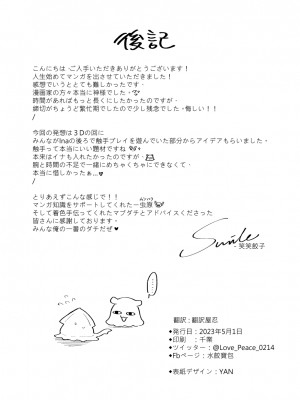 後記
こんにちは ご入手いただきありがとうございます！
人生始めてマンガを出させていただきました！
感想でいうととても難しかったです・
漫画家の方々本当に神様でした・
時間があればもっと長くにしたかったのですが・
締切がちょうど繁忙期でしたので少し残念でした・悔しい！！
/
今回の発想は３Ｄの回に
みんながinaの後ろで触手プレイを遊んでいた部分からアイデアもらいました・
触手って本当にいい題材ですね
本来はイナも入れたかったのですが・
腕と時間の不足で一緒にめちゃくちゃにできなくて・
本当に惜しかったぁ…
/
とりあえずこんな感じで！！
マンガ知識をサポートしてくれた一虫原
そして着色手伝ってくれたマブダチとアドバイスくださった
皆さんに感謝しております・
みんな俺の一番のダチだぜ♥
Smile
笑笑餃子
翻訳：翻訳屋忍
◆発行日：2023年5月1日
◆印刷　：千葉
◆ツイッター：@Love_Peace_0214
◆Fbページ：水餃寶包
◆表紙デザイン：YAN